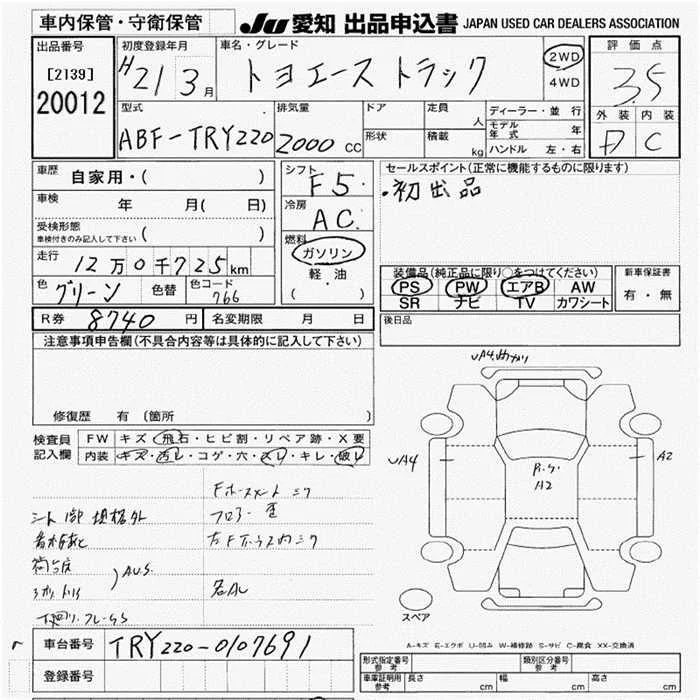 車内保管・守衛保管
JU 愛知 出品申込書 JAPAN USED CAR DEALERS ASSOCIATION
出品番号
[2139]
20012
初度登録年月
H 21 3月
車名・グレード
トヨエース トラック
2WD
4WD
評価点
3.5
外装 内装
D C
型式
ABF-TRY220
排気量
2000 CC
ドア
形状
定員 人
積載 kg
ディーラー・並行
モデル年式 年
ハンドル 左・右
車歴 自家用・( )
車検 年 月( 日)
受検形態
車検付きのみ記入して下さい ( )
走行 12万0千725km
色 グリーン 色替
色コード 766
シフト F5
冷房 AC
燃料
ガソリン
軽・油
( )
セールスポイント(正常に機能するものに限ります)
・初出品
装備品(純正品に限り○をつけてください)
PS PW エアB AW
SR ナビ TV カワシート
新車保証書
有・無
R券 8740円
名変期限 月 日
後日品
注意事項申告欄(不具合内容等は具体的に記入して下さい)
修復歴 有 (箇所 )
検査員記入欄
FW キズ・飛石・ヒビ割・リペア跡・X要
内装 キズ・汚レ・コゲ・穴・スレ・キレ・破レ
UA4
A2
R.S.
A2
スペア
A-キズ E-エクボ U-凹み W-補修跡 S-サビ C-腐食 XX-交換済
車台番号 TRY220-0107691
登録番号
形式指定番号 参考
類別区分番号 参考
車庫証明用 参考
長さ cm
幅 cm
高さ cm